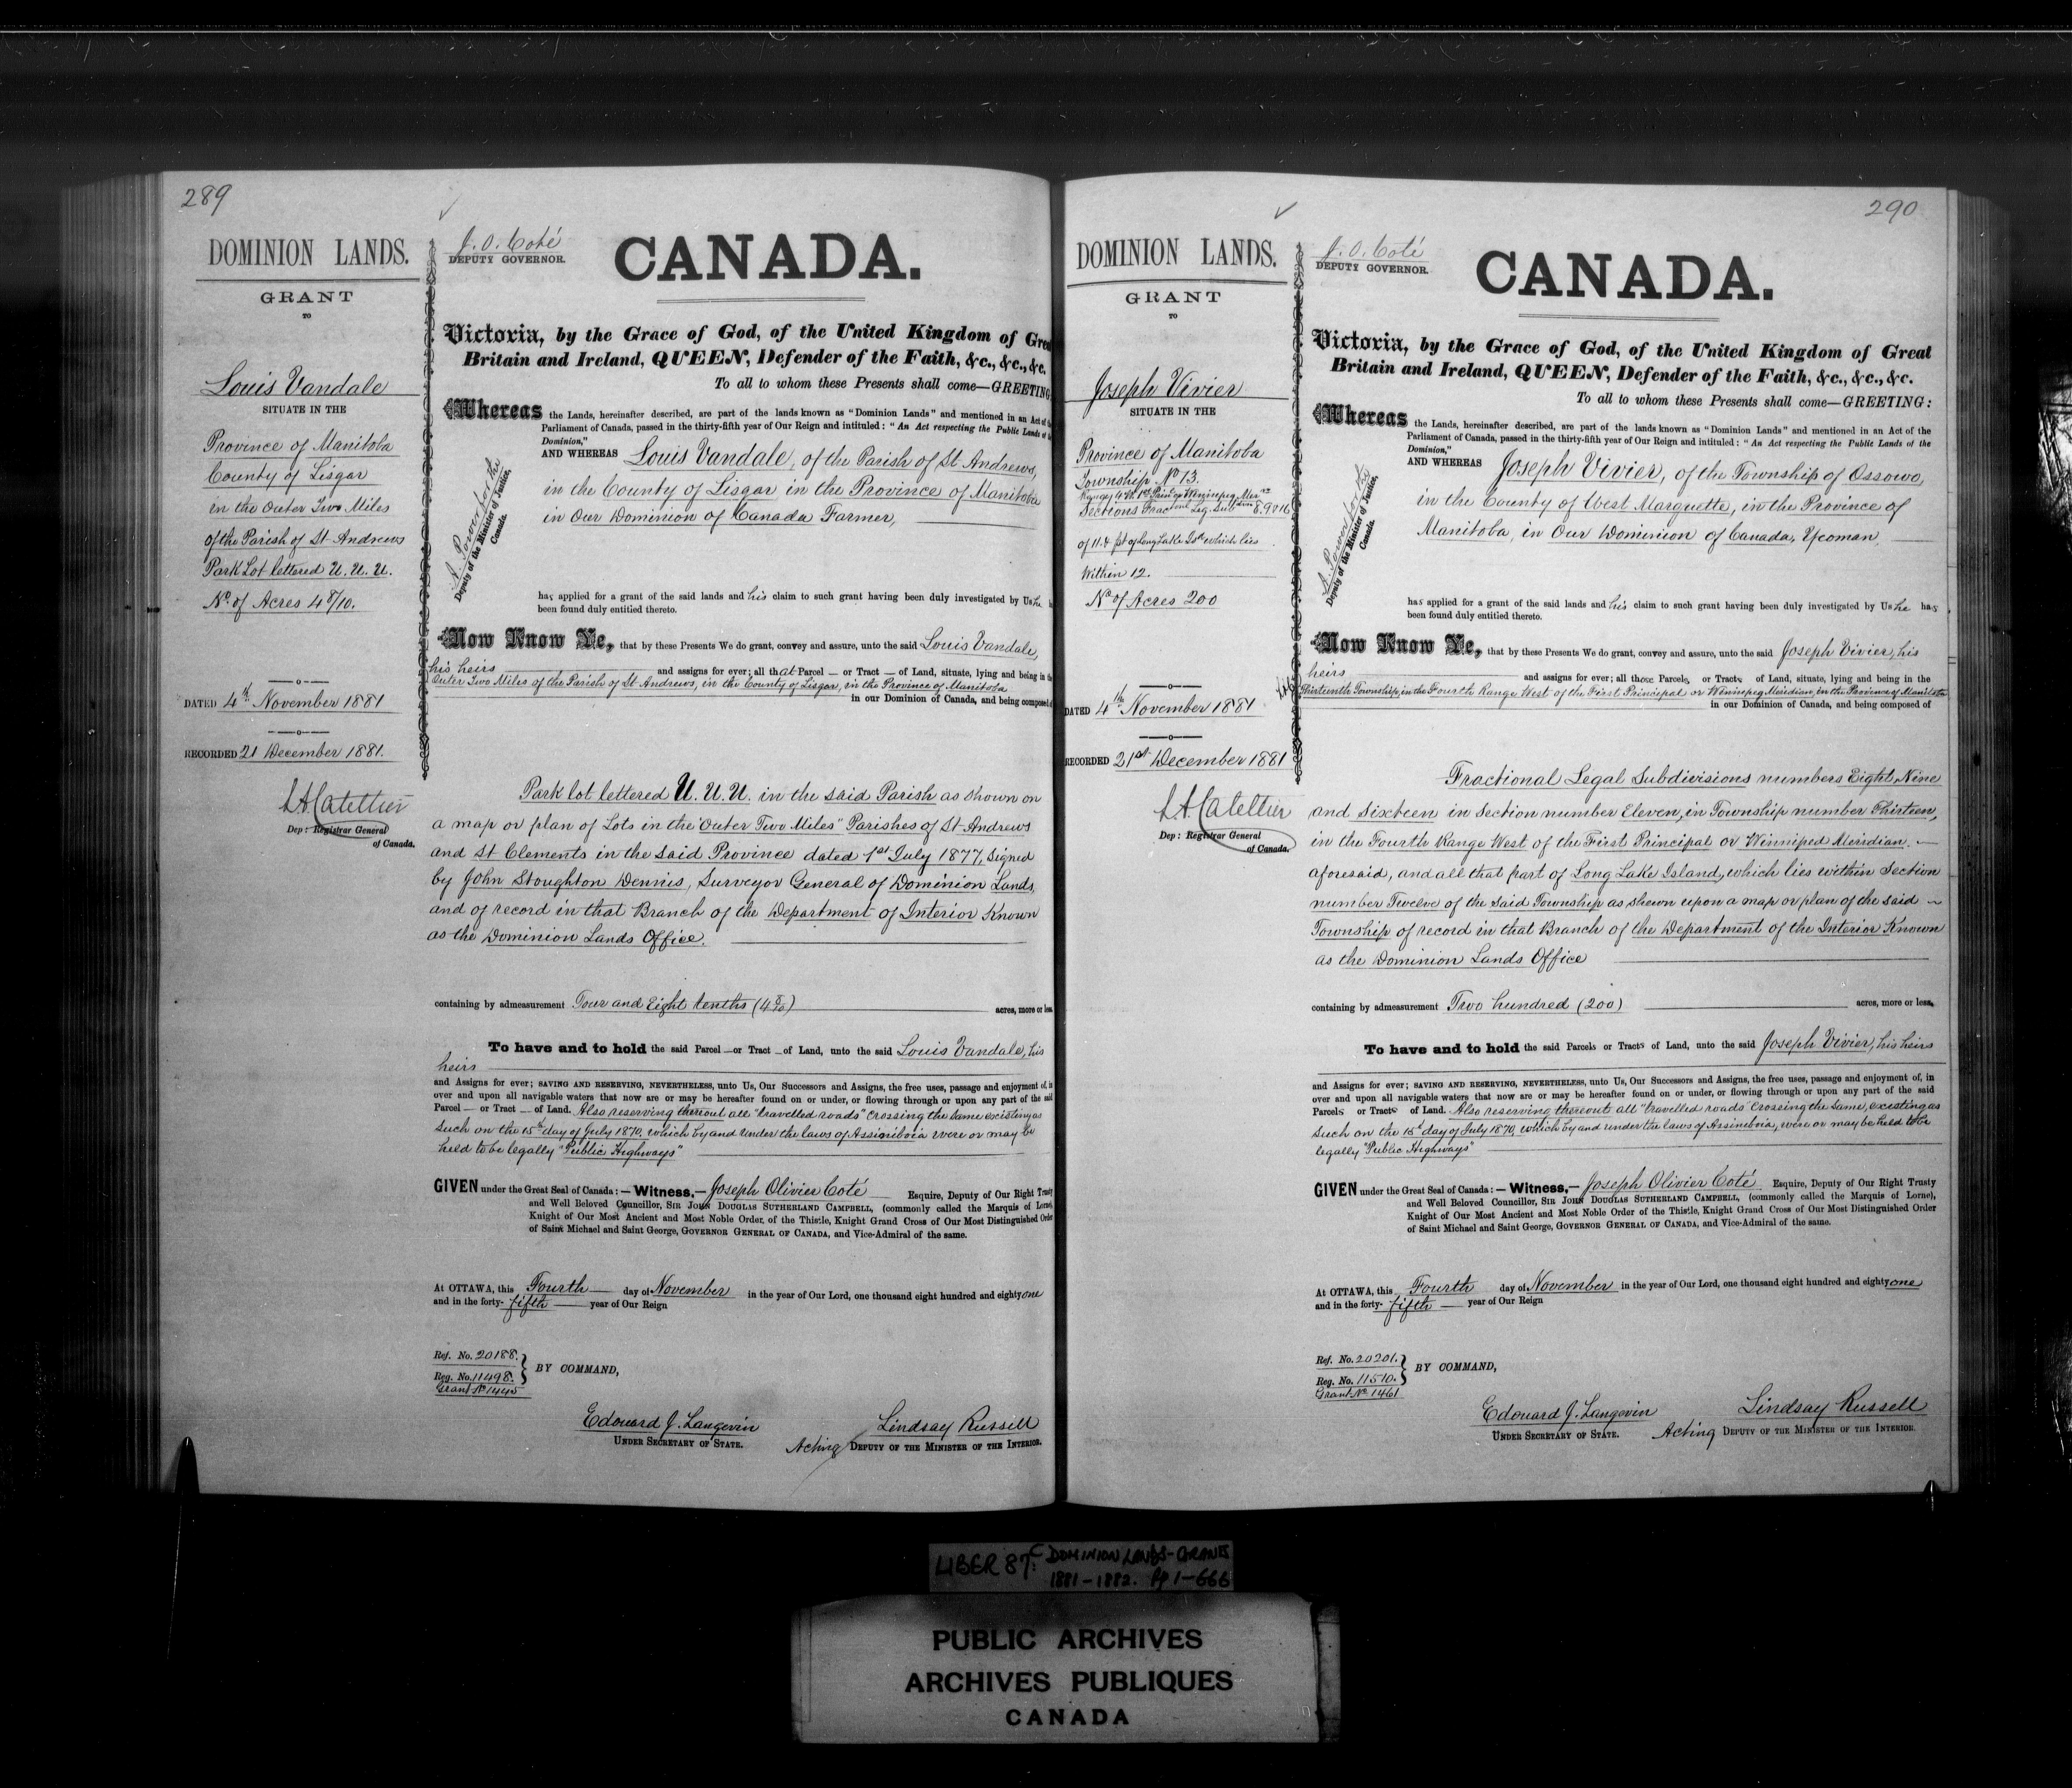 289
DOMINION LANDS.
GRANT
TO
Louis Vandale
SITUATE IN THE
Province of Manitoba
County of Lisgar
in the Outer Two Miles
of the Parish of St Andrews
Park Lot lettered U. U. U.
No. of Acres 4 8/10.
DATED 4th November 1881
RECORDED 21 December 1881.
Dep: Registrar General
of Canada.
J. O. Coté
DEPUTY GOVERNOR.
CANADA.
A. Power for the
Deputy of the Minister of Justice,
Canada.
Victoria, by the Grace of God, of the United Kingdom of Great
Britain and Ireland, QUEEN, Defender of the Faith, &c., &c., &c.
To all to whom these Presents shall come—GREETING
Whereas the Lands, hereinafter described, are part of the lands known as "Dominion Lands" and mentioned in an Act of the
Parliament of Canada, passed in the thirty-fifth year of Our Reign and intituled: "An Act respecting the Public Lands of the
Dominion,"
AND WHEREAS Louis Vandale, of the Parish of St Andrews,
in the County of Lisgar in the Province of Manitoba
in Our Dominion of Canada Farmer,
has applied for a grant of the said lands and his claim to such grant having been duly investigated by Us he
been found duly entitled thereto.
Now Know Ye, that by these Presents We do grant, convey and assure, unto the said Louis Vandale,
his heirs and assigns for ever; all that Parcel — or Tract — of Land, situate, lying and being in the
Outer Two Miles of the Parish of St Andrews, in the County of Lisgar, in the Province of Manitoba
in our Dominion of Canada, and being composed
Park lot lettered U. U. U. in the said Parish as shown on
a map or plan of Lots in the "Outer Two Miles" Parishes of St Andrews
and St Clements in the said Province dated 1st July 1877, signed
by John Stoughton Dennis, Surveyor General of Dominion Lands,
and of record in that Branch of the Department of Interior Known
as the Dominion Lands Office.
containing by admeasurement Four and Eight tenths (4 8/10) acres, more or less
To have and to hold the said Parcel — or Tract — of Land, unto the said Louis Vandale, his
heirs
and Assigns for ever; SAVING AND RESERVING, NEVERTHELESS, unto Us, Our Successors and Assigns, the free uses, passage and enjoyment of, in
over and upon all navigable waters that now are or may be hereafter found on or under, or flowing through or upon any part of the said
Parcel — or Tract — of Land. Also reserving thereout all "travelled roads" crossing the same existing as
such on the 15th day of July 1870, which by and under the laws of Assiniboia were or may be
held to be legally "Public Highways"
GIVEN under the Great Seal of Canada:—Witness,—Joseph Olivier Coté Esquire, Deputy of Our Right Trusty
and Well Beloved Councillor, SIR JOHN DOUGLAS SUTHERLAND CAMPBELL, (commonly called the Marquis of Lorne),
Knight of Our Most Ancient and Most Noble Order, of the Thistle, Knight Grand Cross of Our Most Distinguished Order
of Saint Michael and Saint George, GOVERNOR GENERAL OF CANADA, and Vice-Admiral of the same.
At OTTAWA, this Fourth day of November in the year of Our Lord, one thousand eight hundred and eighty one
and in the forty-fifth year of Our Reign
Ref. No. 20188.
Reg. No. 11498.
BY COMMAND,
Edouard J. Langevin
UNDER SECRETARY OF STATE.
Lindsay Russell
Acting DEPUTY OF THE MINISTER OF THE INTERIOR.
290
DOMINION LANDS.
GRANT
TO
Joseph Vivier
SITUATE IN THE
Province of Manitoba
Township No 13.
Range 4 W. 1st Prin. or Winnipeg Mer.
Sections Fractional Leg. Subdivn 8. 9 & 16
of 11. & pt of Long Lake Isd which lies
Within 12.
No of Acres 200
DATED 4th November 1881
RECORDED 21st December 1881
Dep: Registrar General
of Canada.
J. O. Coté
DEPUTY GOVERNOR.
CANADA.
A. Power for the
Deputy of the Minister of Justice,
Canada.
Victoria, by the Grace of God, of the United Kingdom of Great
Britain and Ireland, QUEEN, Defender of the Faith, &c., &c., &c.
To all to whom these Presents shall come—GREETING:
Whereas the Lands, hereinafter described, are part of the lands known as "Dominion Lands" and mentioned in an Act of the
Parliament of Canada, passed in the thirty-fifth year of Our Reign and intituled: "An Act respecting the Public Lands of the
Dominion,"
AND WHEREAS Joseph Vivier, of the Township of Ossowo,
in the County of West Marquette, in the Province of
Manitoba, in Our Dominion of Canada, Yeoman,
has applied for a grant of the said lands and his claim to such grant having been duly investigated by Us he has
been found duly entitled thereto.
Now Know Ye, that by these Presents We do grant, convey and assure, unto the said Joseph Vivier, his
heirs and assigns for ever; all those Parcels or Tracts of Land, situate, lying and being in the
Thirteenth Township, in the Fourth Range West of the First Principal or Winnipeg Meridian, in the Province of Manitoba
in our Dominion of Canada, and being composed of
Fractional Legal Subdivisions numbers Eight Nine
and Sixteen in Section number Eleven, in Township number Thirteen,
in the Fourth Range West of the First Principal or Winnipeg Meridian.
aforesaid, and all that part of Long Lake Island, which lies within Section
number Twelve of the said Township as shewn upon a map or plan of the said
Township of record in that Branch of the Department of the Interior Known
as the Dominion Lands Office
containing by admeasurement Two hundred (200) acres, more or less.
To have and to hold the said Parcels or Tracts of Land, unto the said Joseph Vivier, his heirs
and Assigns for ever; SAVING AND RESERVING, NEVERTHELESS, unto Us, Our Successors and Assigns, the free uses, passage and enjoyment of, in
over and upon all navigable waters that now are or may be hereafter found on or under, or flowing through or upon any part of the said
Parcels or Tracts of Land. Also reserving thereout all "travelled roads" crossing the same, existing as
such on the 15th day of July 1870, which by and under the laws of Assiniboia, were or may be held to be
legally "Public Highways"
GIVEN under the Great Seal of Canada:—Witness,—Joseph Olivier Coté Esquire, Deputy of Our Right Trusty
and Well Beloved Councillor, SIR JOHN DOUGLAS SUTHERLAND CAMPBELL, (commonly called the Marquis of Lorne),
Knight of Our Most Ancient and Most Noble Order of the Thistle, Knight Grand Cross of Our Most Distinguished Order
of Saint Michael and Saint George, GOVERNOR GENERAL OF CANADA, and Vice-Admiral of the same.
At OTTAWA, this Fourth day of November in the year of Our Lord, one thousand eight hundred and eighty one
and in the forty-fifth year of Our Reign
Ref. No. 20201.
Reg. No. 11510.
Grant No. 1461
BY COMMAND,
Edouard J. Langevin
UNDER SECRETARY OF STATE.
Lindsay Russell
Acting DEPUTY OF THE MINISTER OF THE INTERIOR.
LIBER 87: C DOMINION LANDS-GRANTS
1881-1882. Pp 1-666
PUBLIC ARCHIVES
ARCHIVES PUBLIQUES
CANADA